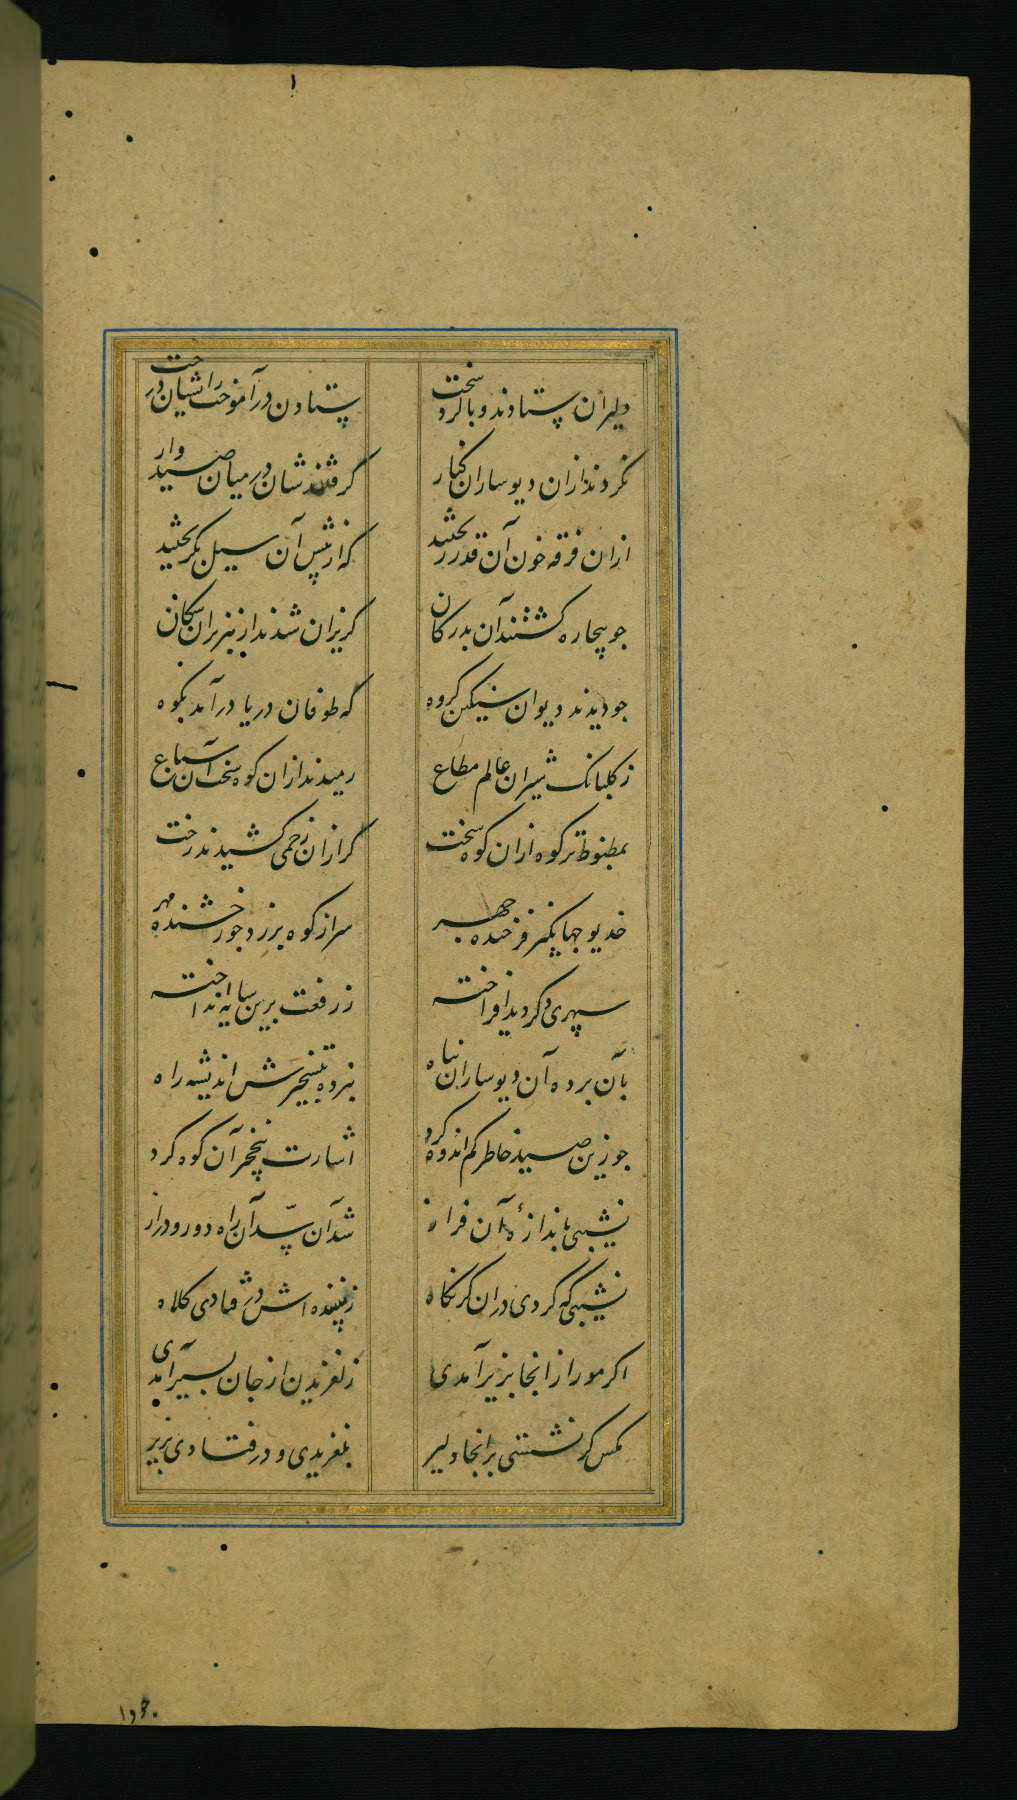 دلیران ستادند و با کرد سخت ستادن در آموخت شیان درخت
نکردند ازان دیوساران کنار گرفتند شان در میان صیدوار
ازان فرقه خون آن قدر ریختند که از پیش آن سیل بگریختند
جو بیچاره کشتند آن بدرکان کریزان شدند از هزبران سکان
جو دیدند دیوان سنکین کروه که طوفان دریا در آمد بکوه
ز کلبانک شیران عالم مطاع رمیدند ازان کوه سخت آن سباع
بمضبوط تر کوه ازان کوه سخت کرازان زخمی کشیدند رخت
خدیو جهانکیر فرخنده جهر سر از کوه برزد جو رخشنده مهر
سپهری دکر دید افراخته ز رفعت برین سایه انداخته
بآن برده آن دیوساران پناه نبرده بتسخیرش اندیشه راه
جو زین صید خاطر کم اندوه کرد اشارت بنخجیر آن کوه کرد
نشیبی باندازهٔ آن فراز شد آن سد آن راه دور و دراز
نشیبی که کردی دران کر نکاه ز بیننده اش در فتادی کلاه
اکر مور از انجا بزیر آمدی ز لغزیدن از جان بسیر آمدی
مکس کر نشستی بر انجا دلیر بلغزیدی و در فتادی بزیر